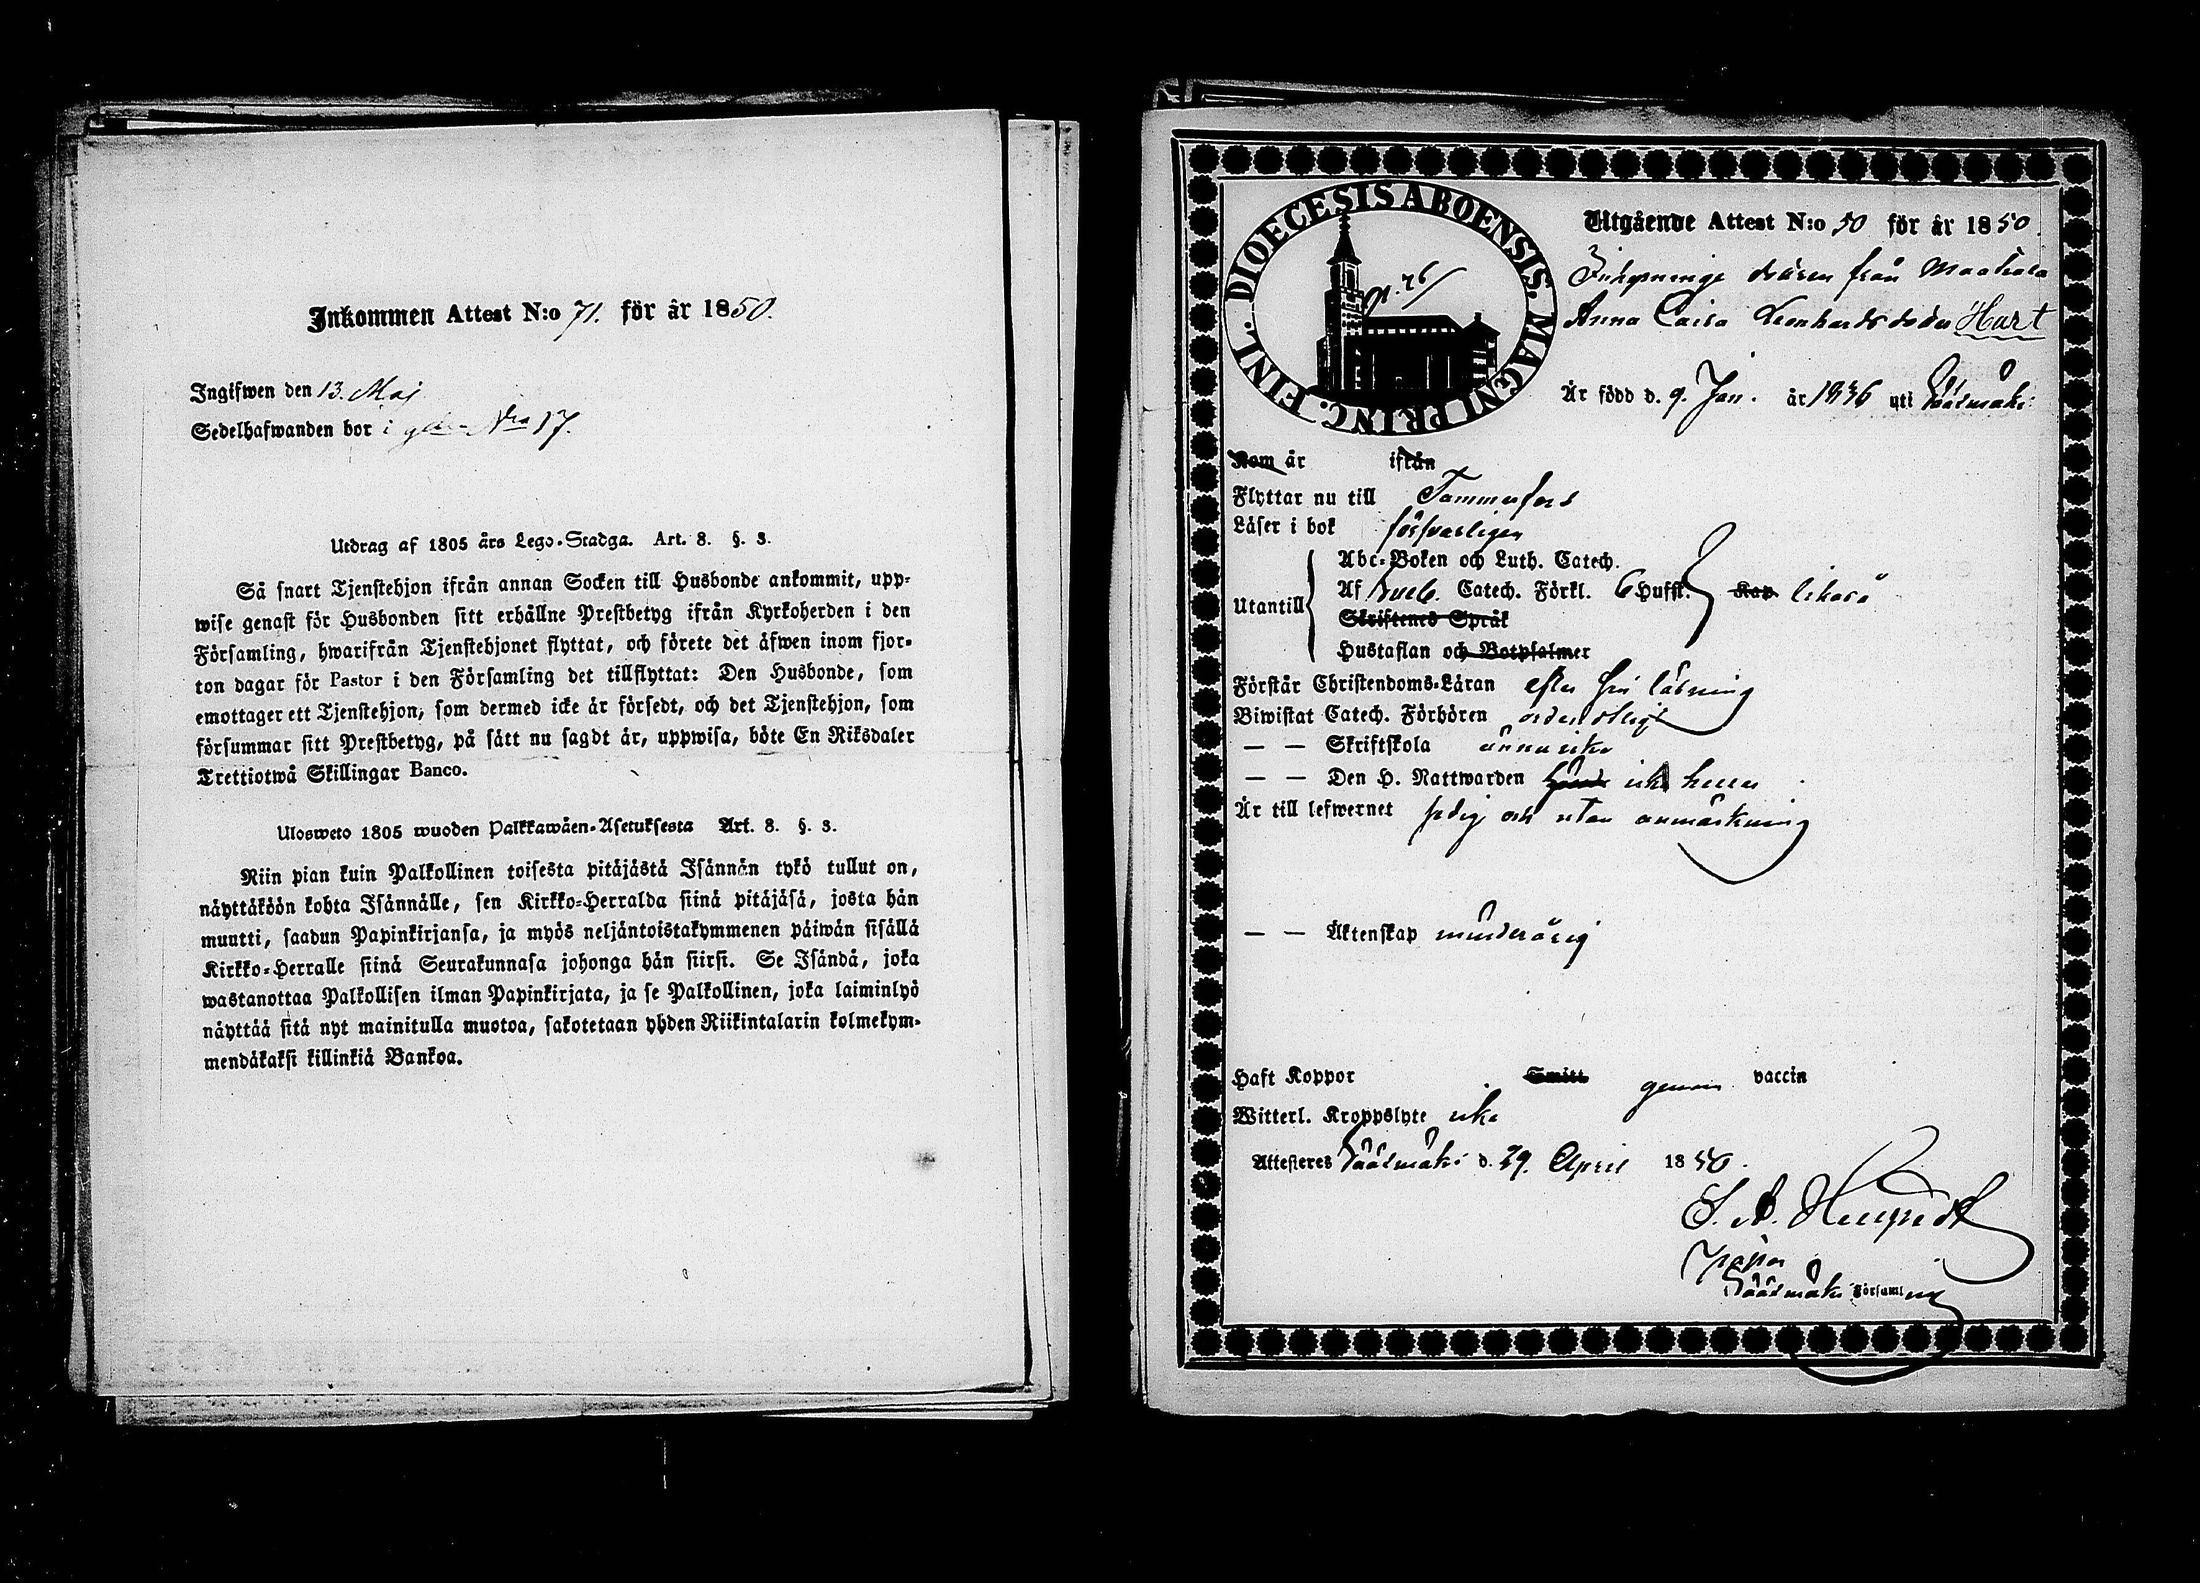 Inkommen Attest N:o 71. för år 1850.
Ingifwen den 13. Maj
Sedelhafwanden bor i N:ro 17.
Utdrag af 1805 års Lego-Stadga. Art. 8. §. 3.
Så snart Tjenstehjon ifrån annan Socken till Husbonde ankommit, upp-
wise genast för Husbonden sitt erhållne Prestbetyg ifrån Kyrkoherden i den
Församling, hwarifrån Tjenstehjonet flyttat, och förete det äfwen inom fjor-
ton dagar för Pastor i den Församling det tillflyttat: Den Husbonde, som
emottager ett Tjenstehjon, som dermed icke är försedt, och det Tjenstehjon, som
försummar sitt Prestbetyg, på sätt nu sagdt är, uppwisa, böte En Riksdaler
Trettiotwå Skillingar Banco.
Ulosweto 1805 wuoden Palkkawäen-Asetuksesta Art. 8. §. 3.
Niin pian kuin Palkollinen toisesta pitäjästä Isännän tykö tullut on,
näyttäköön kohta Isännälle, sen Kirkko-Herralda siinä pitäjäsä, josta hän
muutti, saadun Papinkirjansa, ja myös neljäntoistakymmenen päiwän sisällä
Kirkko-Herralle siinä Seurakunnasa johonga hän siirsi. Se Isändä, joka
wastanottaa Palkollisen ilman Papinkirjata, ja se Palkollinen, joka laiminlyö
näyttää sitä nyt mainitulla muotoa, sakotetaan yhden Riikintalarin kolmekym-
mendäkaksi killinkiä Bankoa.
DIOECESIS ABOENSIS. MAGNI PRINC. FINL.
Utgående Attest N:o 50 för år 1850.
Inhysninge från
Anna Caisa Leonhardsdoter Hart
Är född d. 9. Jan. år 1836 uti Sääxmäki
Kom år ifrån
Flyttar nu till Tammerfors
Läser i bok försvarligen
Utantill
Abc-Boken och Luth. Catech.
Af Sveb. Catech. Förkl. 6 Hufst. Kap likaså
Skriftenes Språk
Hustaflan och Botpsalmer
Förstår Christendoms-Läran efter sin läsning
Biwistat Catech. Förhören ordentligt
— — Skriftskola ännu icke
— — Den H. Nattwarden icke heller
Är till lefwernet frdig och utan anmärkning
— — Äktenskap minderårig
Haft Koppor Smitt genom vaccin
Witterl. Kroppslyte icke
Attesteres Sääxmäki d. 29. April 1850.
Sääxmäki Församling